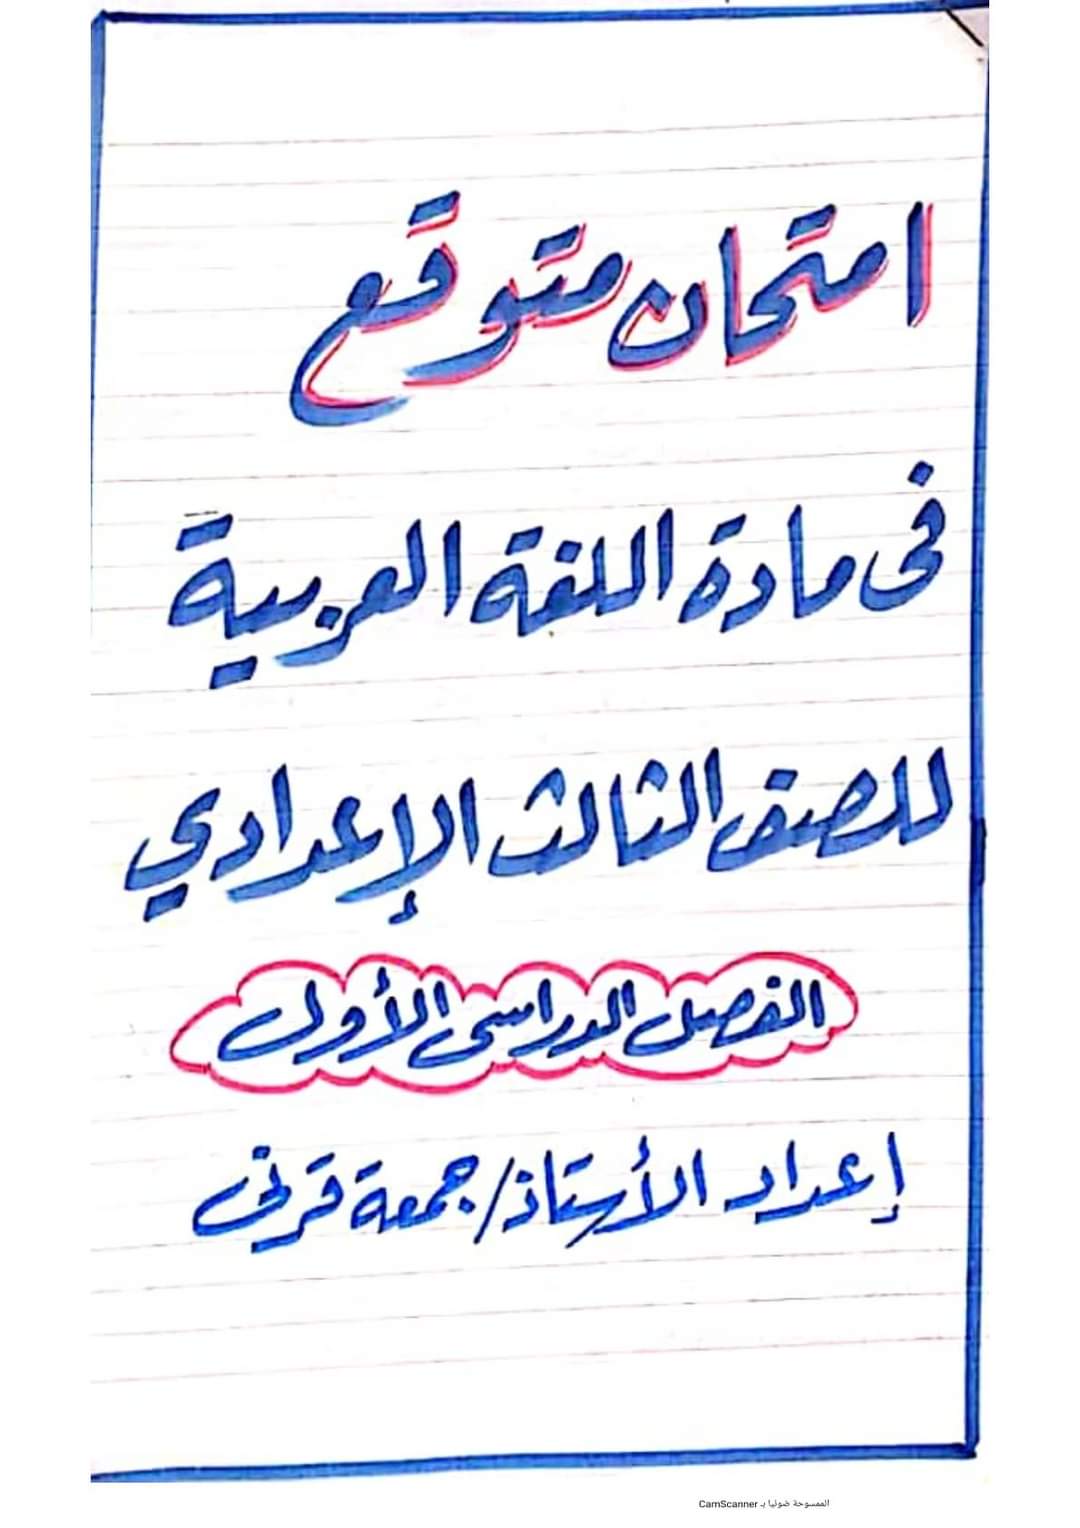 امتحان متوقع
فى مادة اللغة العربية
للصف الثالث الإعدادي
الفصل الدراسى الأول
إعداد الأستاذ/ جمعة قرنى
الممسوحة ضوئيا بـ CamScanner